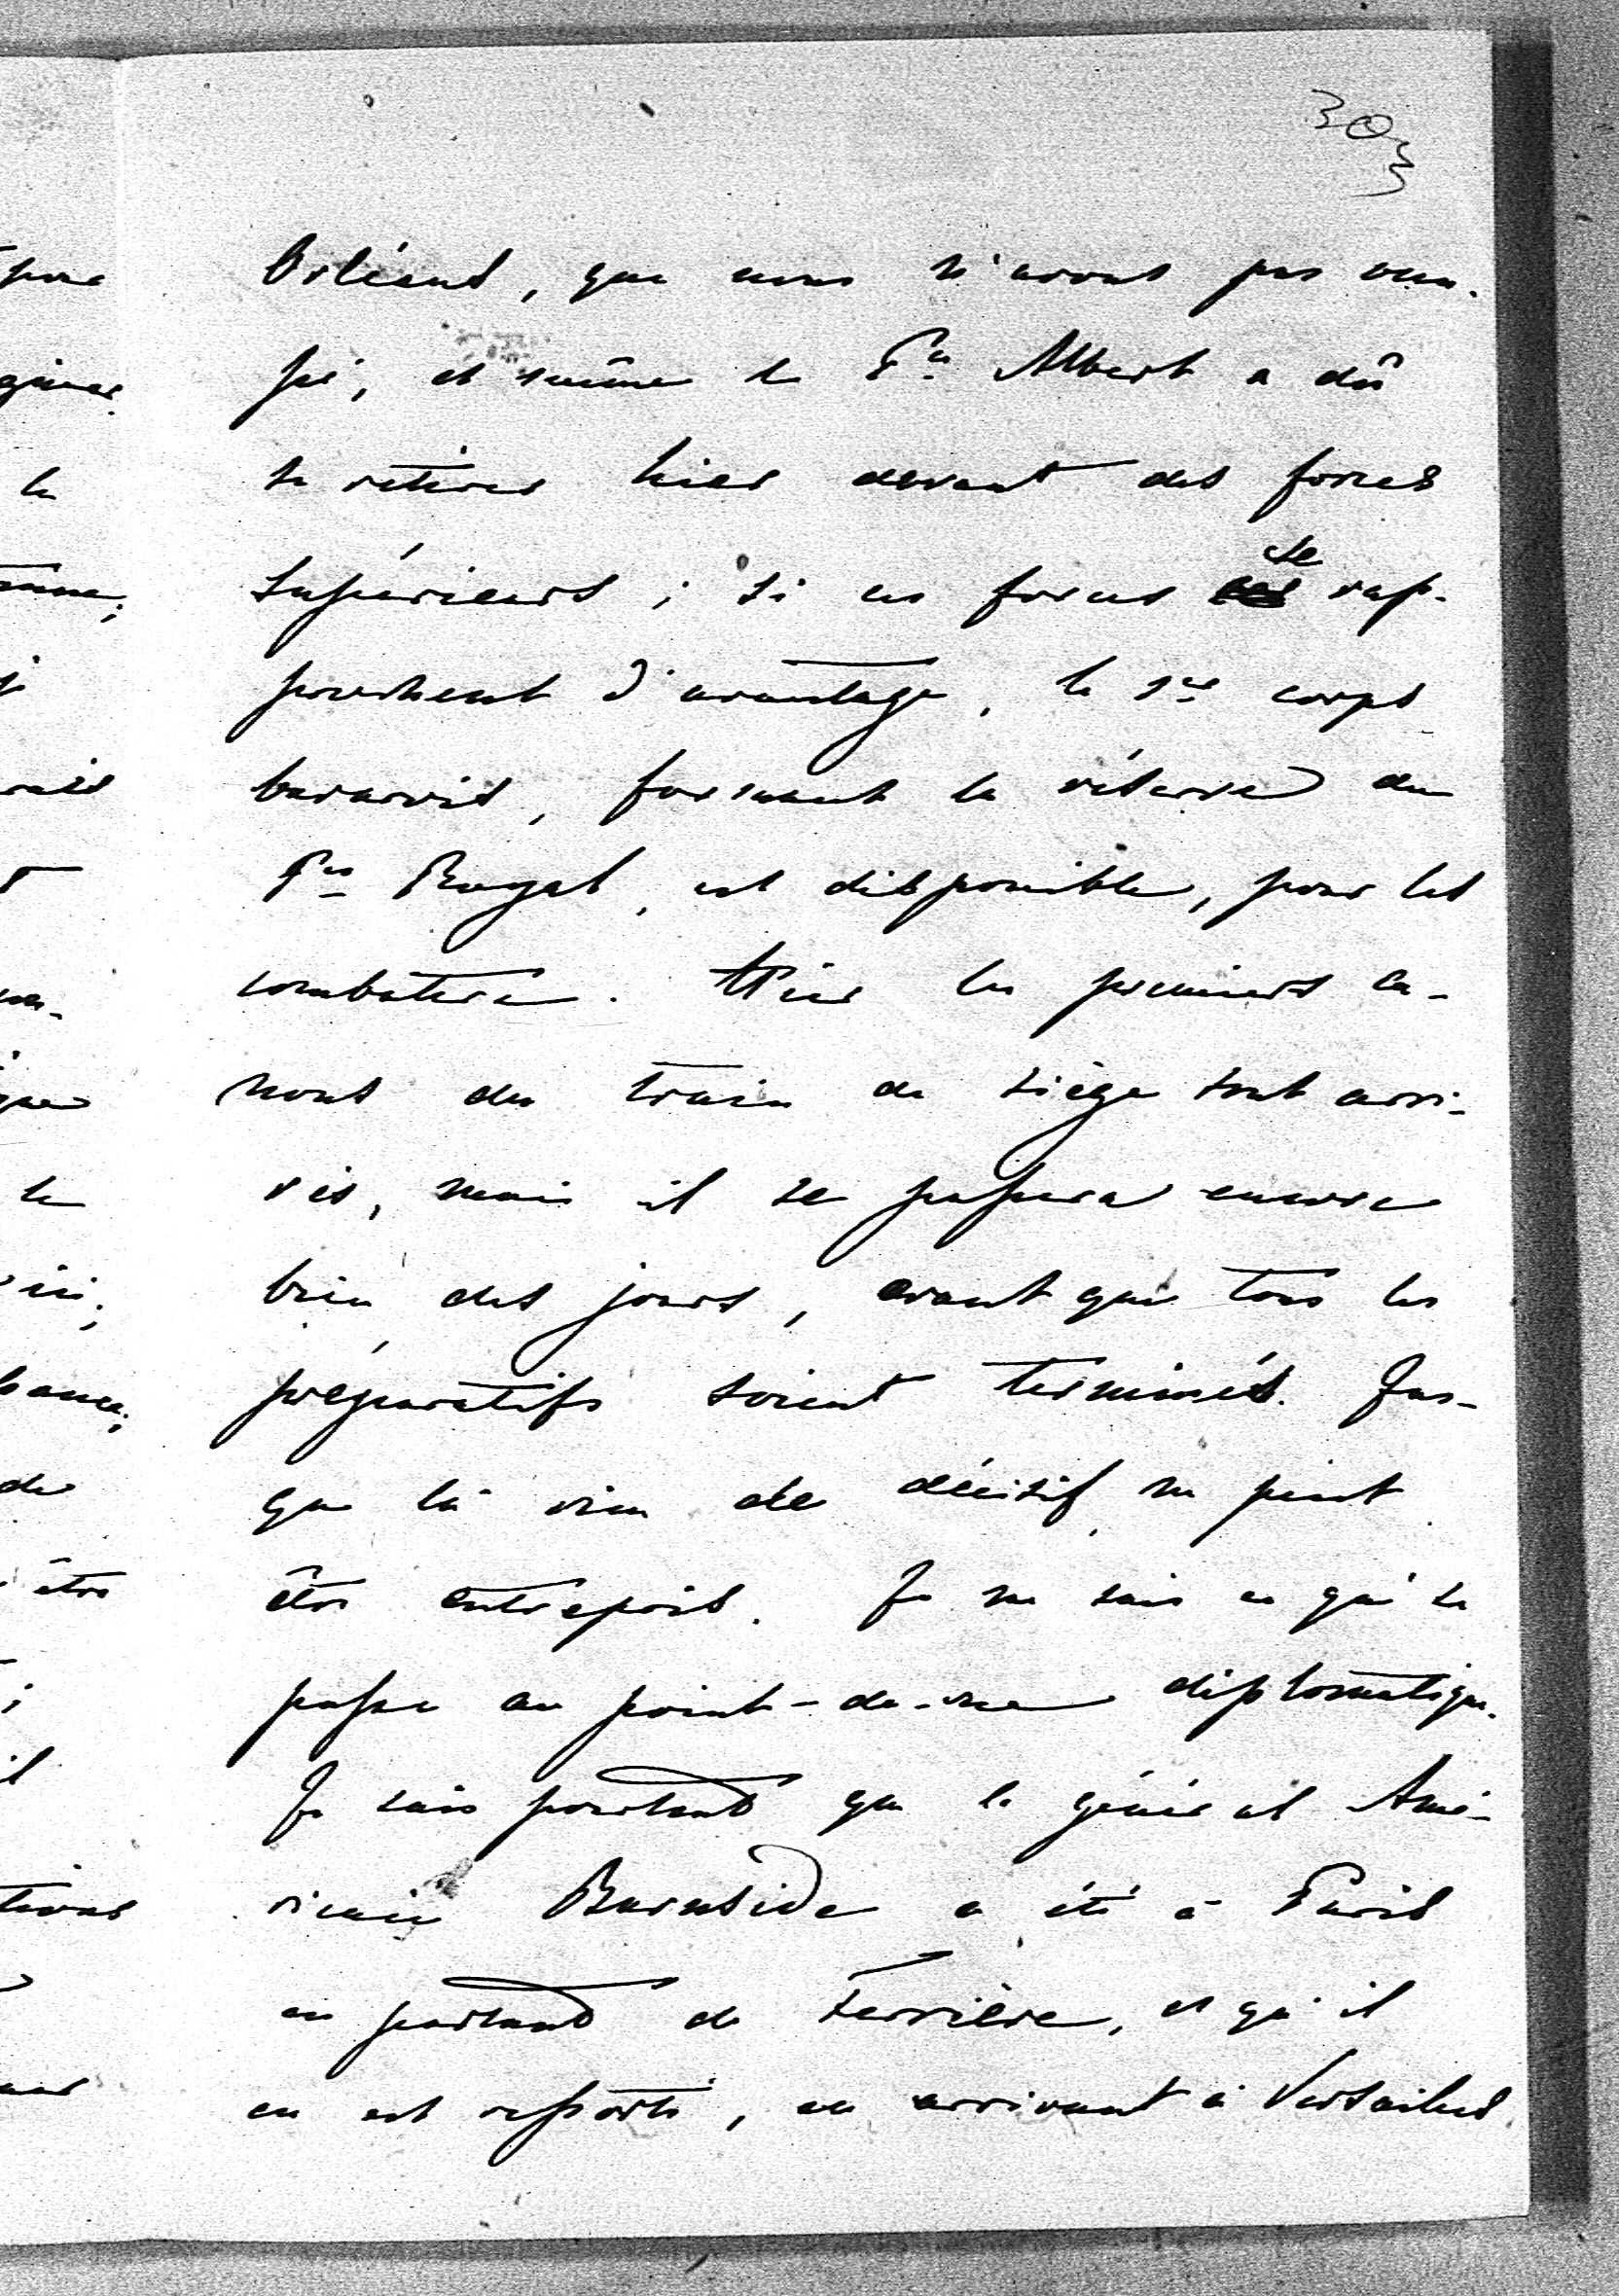 303
Orléans, que nous n'avons pas occu-
pé, et même le Pce Albert a dû
se retirer hier devant des forces
supérieurs ; si ces forces se rap-
prochent d'avantage, le 1er corps
bavarois, formant la réserve du
Pce Royal, est disponible, pour les
combattre. Hier les premiers ca-
nons du train de siège sont arri-
vés, mais il se passera encore
bien des jours, avant que tous les
préparatifs soient terminés. Jus-
que là rien de décisif ne peut
être entrepris. Je ne sais ce qui se
passe au point-de-vue diplomatique.
Je sais pourtant que le général Amé-
ricain Burnside a été à Paris
en partant de Ferrière, et qu'il
en est reparti, en arrivant à Versailles